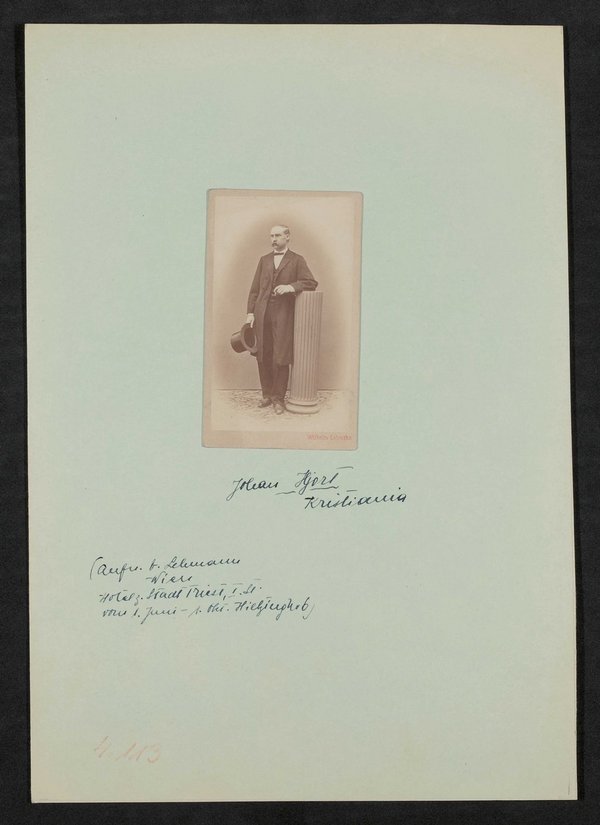 Johan Hjort
Kristiania
(Aufn. v. Lehmann
Wien
Hotel z. Stadt Triest, I. St.
vom 1. Juni – 1. Okt.
4.113